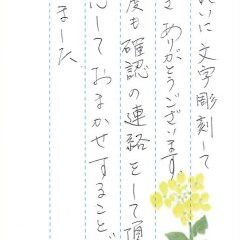 れいに文字彫刻して
ありがとうございます。
度も確認の連絡をして頂
心しておまかせすること
ました